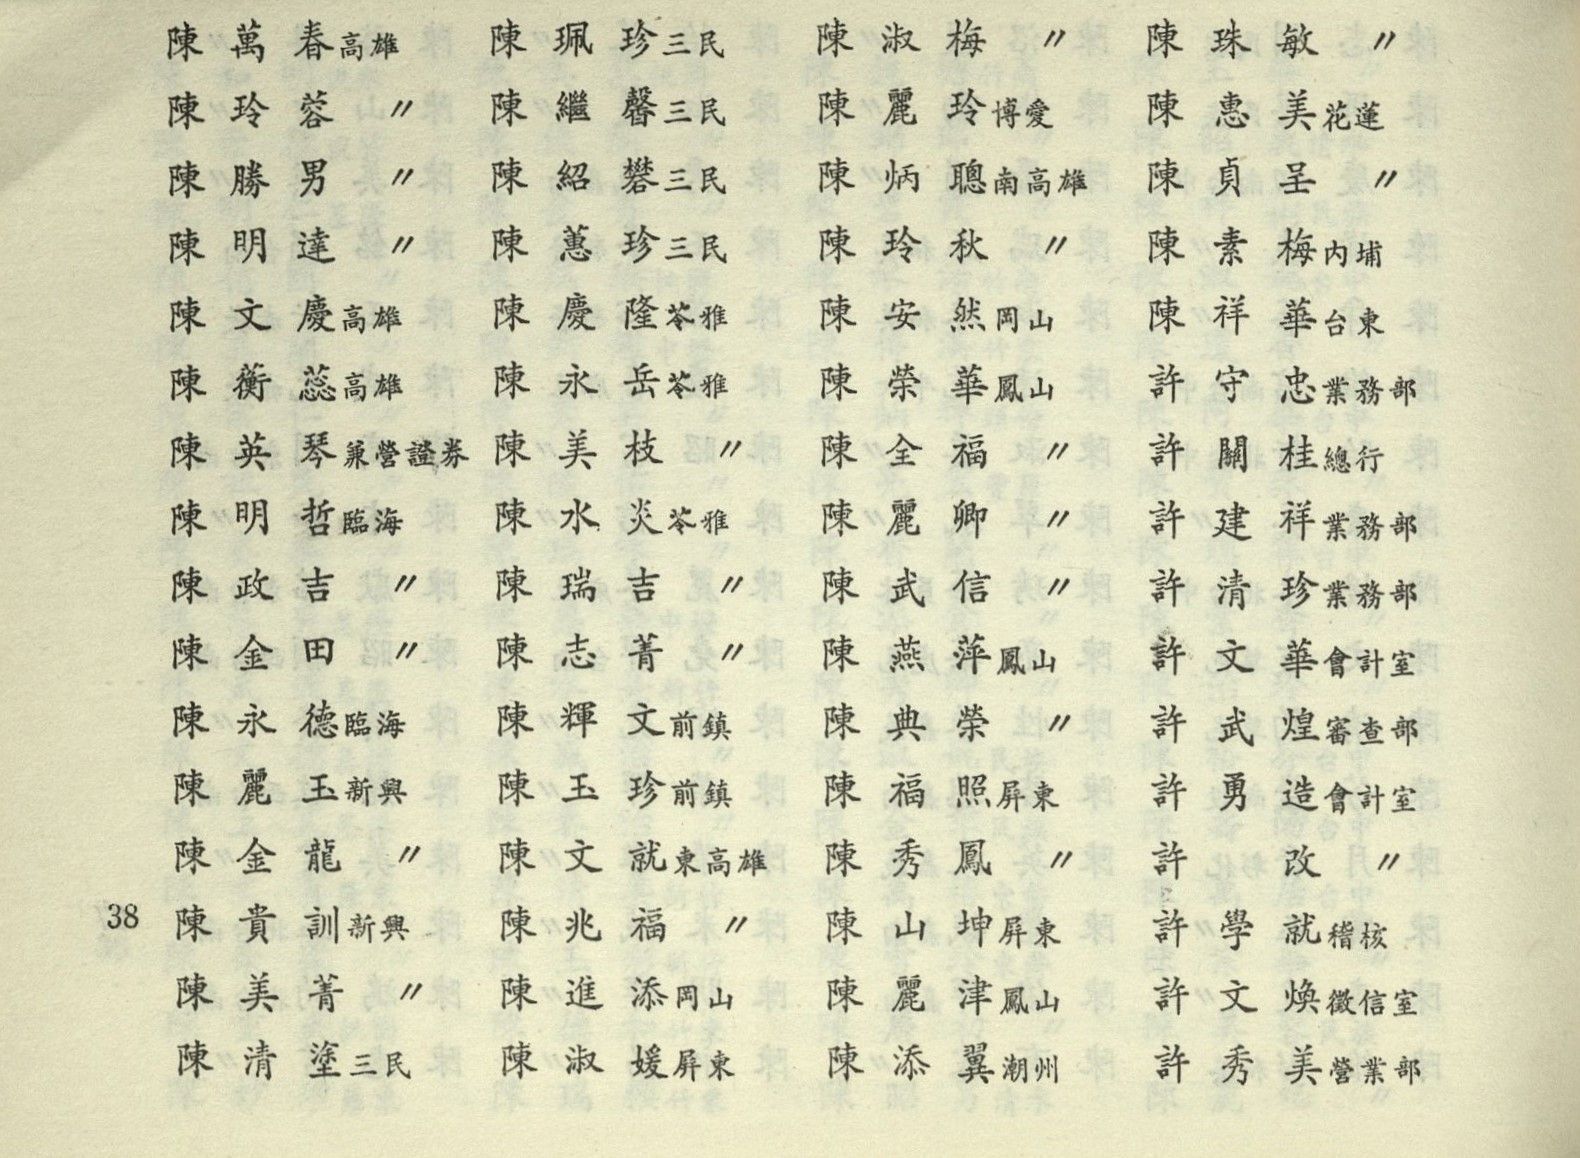 陳萬春高雄
陳玲蓉〃
陳勝男〃
陳明達〃
陳文慶高雄
陳蘅蕊高雄
陳英琴兼營證券
陳明哲臨海
陳政吉〃
陳金田〃
陳永德臨海
陳麗玉新興
陳金龍〃
38 陳貴訓新興
陳美菁〃
陳清塗三民
陳珮珍三民
陳繼馨三民
陳紹礬三民
陳蕙珍三民
陳慶隆苓雅
陳永岳苓雅
陳美枝〃
陳水炎苓雅
陳瑞吉〃
陳志菁〃
陳輝文前鎮
陳玉珍前鎮
陳文就東高雄
陳兆福〃
陳進添岡山
陳淑媛屏東
陳淑梅〃
陳麗玲博愛
陳炳聰南高雄
陳玲秋〃
陳安然岡山
陳榮華鳳山
陳全福〃
陳麗卿〃
陳武信〃
陳燕萍鳳山
陳典榮〃
陳福照屏東
陳秀鳳〃
陳山坤屏東
陳麗津鳳山
陳添翼潮州
陳珠敏〃
陳惠美花蓮
陳貞呈〃
陳素梅內埔
陳祥華台東
許守忠業務部
許關桂總行
許建祥業務部
許清珍業務部
許文華會計室
許武煌審查部
許勇造會計室
許改〃
許學就稽核
許文煥徵信室
許秀美營業部